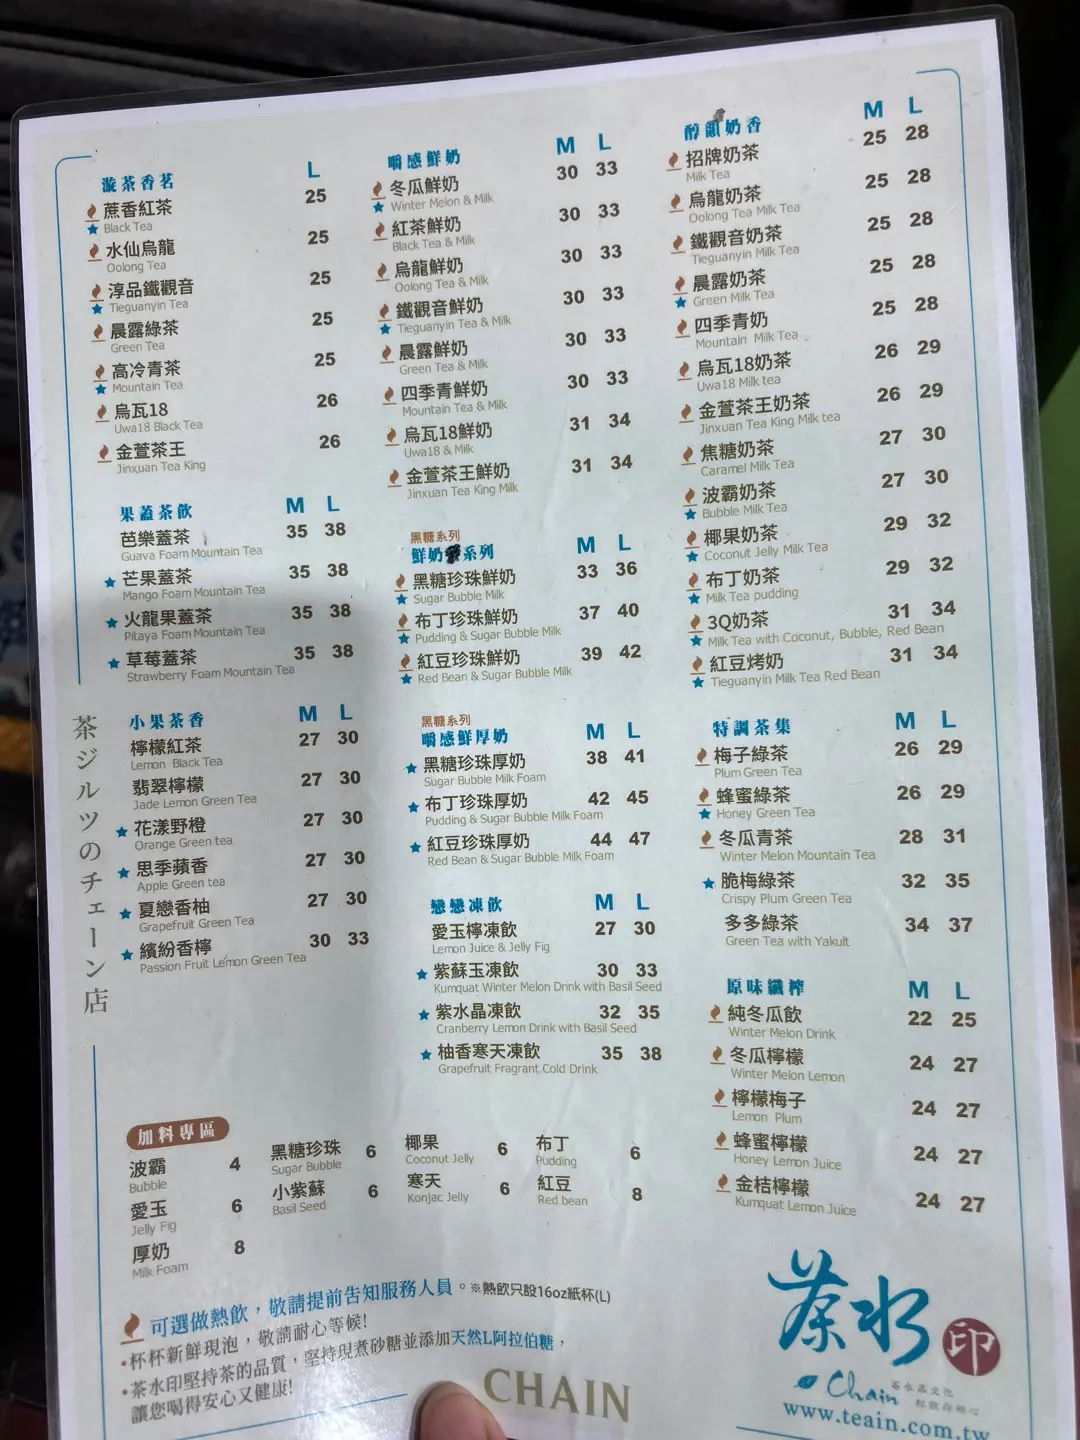 漩茶香茗 L
蔗香紅茶 25
Black Tea
水仙烏龍 25
Oolong Tea
淳品鐵觀音 25
Tieguanyin Tea
晨露綠茶 25
Green Tea
高冷青茶 25
Mountain Tea
烏瓦18 26
Uwa18 Black Tea
金萱茶王 26
Jinxuan Tea King
果蓋茶飲 M L
芭樂蓋茶 35 38
Guava Foam Mountain Tea
芒果蓋茶 35 38
Mango Foam Mountain Tea
火龍果蓋茶 35 38
Pitaya Foam Mountain Tea
草莓蓋茶 35 38
Strawberry Foam Mountain Tea
小果茶香 M L
檸檬紅茶 27 30
Lemon Black Tea
翡翠檸檬 27 30
Jade Lemon Green Tea
花漾野橙 27 30
Orange Green tea
思季蘋香 27 30
Apple Green tea
夏戀香柚 27 30
Grapefruit Green Tea
繽紛香檸 30 33
Passion Fruit Lemon Green Tea
茶ジルツのチェーン店
嚼感鮮奶 M L
冬瓜鮮奶 30 33
Winter Melon & Milk
紅茶鮮奶 30 33
Black Tea & Milk
烏龍鮮奶 30 33
Oolong Tea & Milk
鐵觀音鮮奶 30 33
Tieguanyin Tea & Milk
晨露鮮奶 30 33
Green Tea & Milk
四季青鮮奶 30 33
Mountain Tea & Milk
烏瓦18鮮奶 31 34
Uwa18 & Milk
金萱茶王鮮奶 31 34
Jinxuan Tea King Milk
黑糖系列
鮮奶 系列 M L
黑糖珍珠鮮奶 33 36
Sugar Bubble Milk
布丁珍珠鮮奶 37 40
Pudding & Sugar Bubble Milk
紅豆珍珠鮮奶 39 42
Red Bean & Sugar Bubble Milk
黑糖系列
嚼感鮮厚奶 M L
黑糖珍珠厚奶 38 41
Sugar Bubble Milk Foam
布丁珍珠厚奶 42 45
Pudding & Sugar Bubble Milk Foam
紅豆珍珠厚奶 44 47
Red Bean & Sugar Bubble Milk Foam
戀戀凍飲 M L
愛玉檸凍飲 27 30
Lemon Juice & Jelly Fig
紫蘇玉凍飲 30 33
Kumquat Winter Melon Drink with Basil Seed
紫水晶凍飲 32 35
Cranberry Lemon Drink with Basil Seed
柚香寒天凍飲 35 38
Grapefruit Fragrant Cold Drink
醇韻奶香 M L
招牌奶茶 25 28
Milk Tea
烏龍奶茶 25 28
Oolong Tea Milk Tea
鐵觀音奶茶 25 28
Tieguanyin Milk Tea
晨露奶茶 25 28
Green Milk Tea
四季青奶 25 28
Mountain Milk Tea
烏瓦18奶茶 26 29
Uwa18 Milk tea
金萱茶王奶茶 26 29
Jinxuan Tea King Milk tea
焦糖奶茶 27 30
Caramel Milk Tea
波霸奶茶 27 30
Bubble Milk Tea
椰果奶茶 29 32
Coconut Jelly Milk Tea
布丁奶茶 29 32
Milk Tea pudding
3Q奶茶 31 34
Milk Tea with Coconut, Bubble, Red Bean
紅豆烤奶 31 34
Tieguanyin Milk Tea Red Bean
特調茶集 M L
梅子綠茶 26 29
Plum Green Tea
蜂蜜綠茶 26 29
Honey Green Tea
冬瓜青茶 28 31
Winter Melon Mountain Tea
脆梅綠茶 32 35
Crispy Plum Green Tea
多多綠茶 34 37
Green Tea with Yakult
原味鐵榨 M L
純冬瓜飲 22 25
Winter Melon Drink
冬瓜檸檬 24 27
Winter Melon Lemon
檸檬梅子 24 27
Lemon Plum
蜂蜜檸檬 24 27
Honey Lemon Juice
金桔檸檬 24 27
Kumquat Lemon Juice
加料專區
波霸 4
Bubble
愛玉 6
Jelly Fig
厚奶 8
Milk Foam
黑糖珍珠 6
Sugar Bubble
小紫蘇 6
Basil Seed
椰果 6
Coconut Jelly
寒天 6
Konjac Jelly
布丁 6
Pudding
紅豆 8
Red bean
可選做熱飲，敬請提前告知服務人員。※熱飲只設16oz紙杯(L)
•杯杯新鮮現泡，敬請耐心等候!
•茶水印堅持茶的品質，堅持現煮砂糖並添加天然L阿拉伯糖，
讓您喝得安心又健康!
CHAIN
茶水印
Chain
www.teain.com.tw